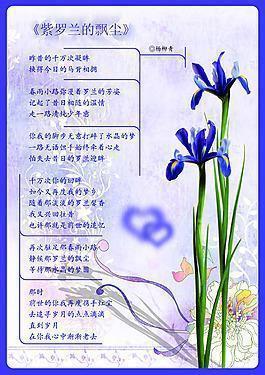 《紫罗兰的飘尘》
◎杨柳青
昨昔的千万次凝眸
换得今日的马背相拥
春雨小路弥漫着罗兰的芳姿
记起了昔日相随的温情
走一路清纯少年意
你我的脚步无意打碎了水晶的梦
一路无语但千始终牵着心走
怕失去昔日的罗兰迎眸
千万次你的回眸
如今又再度我的梦乡
随着那淡淡的罗兰馨香
我又兴回往昔
也许那就是前世的追忆
再次驻足那春雨小路
静候那罗兰的飘尘
等待那水晶的梦圆
那时
前世的你我再度携手红尘
去追寻岁月的点点滴滴
直到岁月
在你我心中渐渐老去